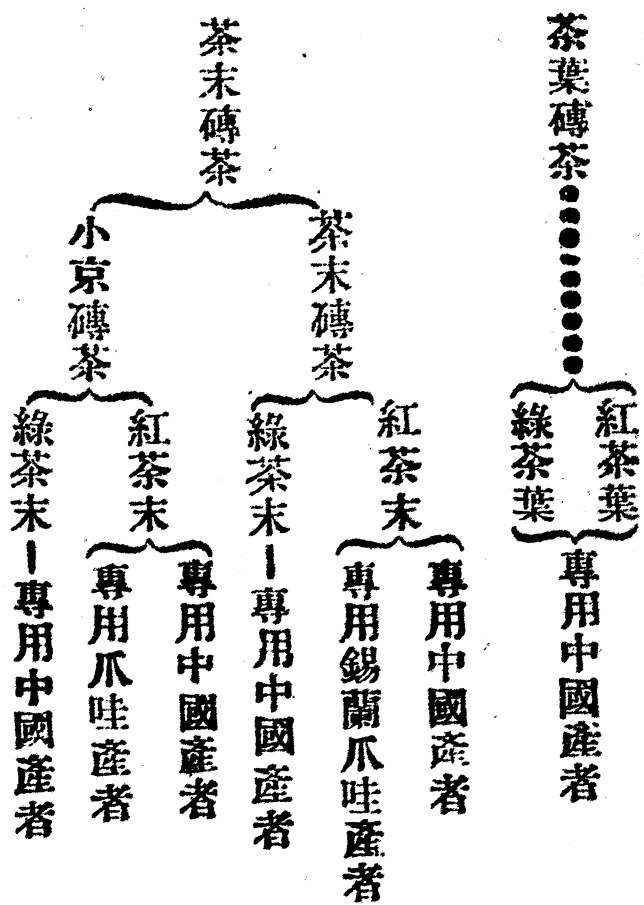 茶葉磚茶
紅茶葉
綠茶葉
專用中國產者
茶末磚茶
茶末磚茶
紅茶末
專用中國產者
專用錫蘭爪哇產者
綠茶末—專用中國產者
小京磚茶
紅茶末
專用中國產者
專用爪哇產者
綠茶末—專用中國產者